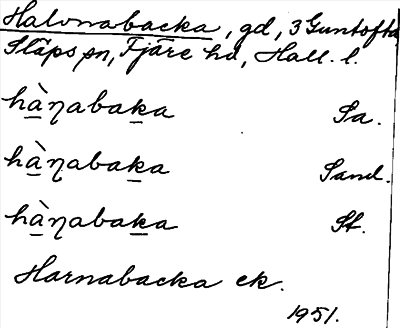 Halvnabacka, gd, 3 Guntofta
Släps sn, Fjäre hd, Hall. l.
hàꞃabaka Sa.
hàꞃabaka Sand.
hàꞃabaka St.
Harnabacka ek.
1951.